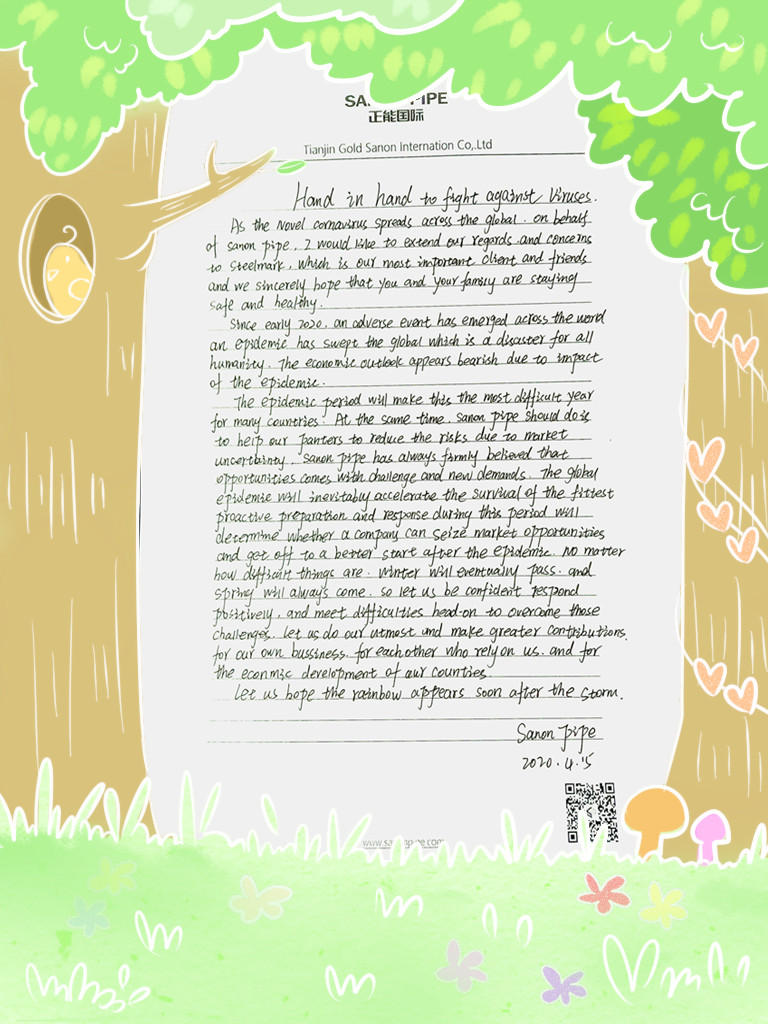 SANON PIPE
正能国际
Tianjin Gold Sanon Internation Co,.Ltd
Hand in hand to fight against Viruses.
As the Novel cornavirus spreads across the global. on behalf
of sanon pipe, I would like to extend our regards and concerns
to Steelmark, which is our most important client and friends
and we sincerely hope that you and your family are staying
safe and healthy.
Since early 2020, an adverse event has emerged across the world
an epidemic has swept the global which is a disaster for all
humanity. The economic outlook appears bearish due to impact
of the epidemic.
The epidemic period will make this the most difficult year
for many countries. At the same time. Sanon pipe should do is
to help our panters to reduce the risks due to market
uncertainty. Sanon pipe has always firmly believed that
opportunities comes with challenge and new demands. The global
epidemic will inevitably accelerate the survival of the fittest
proactive preparation and response during this period will
determine whether a company can seize market opportunities
and get off to a better start after the epidemic. No matter
how difficult things are. winter will eventually pass. and
spring will always come. so let us be confident respond
positively, and meet difficulties head-on to overcome those
challenges. let us do our utmost and make greater contributions.
for our own bussiness. for each other who rely on us. and for
the econmic development of our counties.
Let us hope the rainbow appears soon after the storm.
Sanon Pipe
2020.4.15